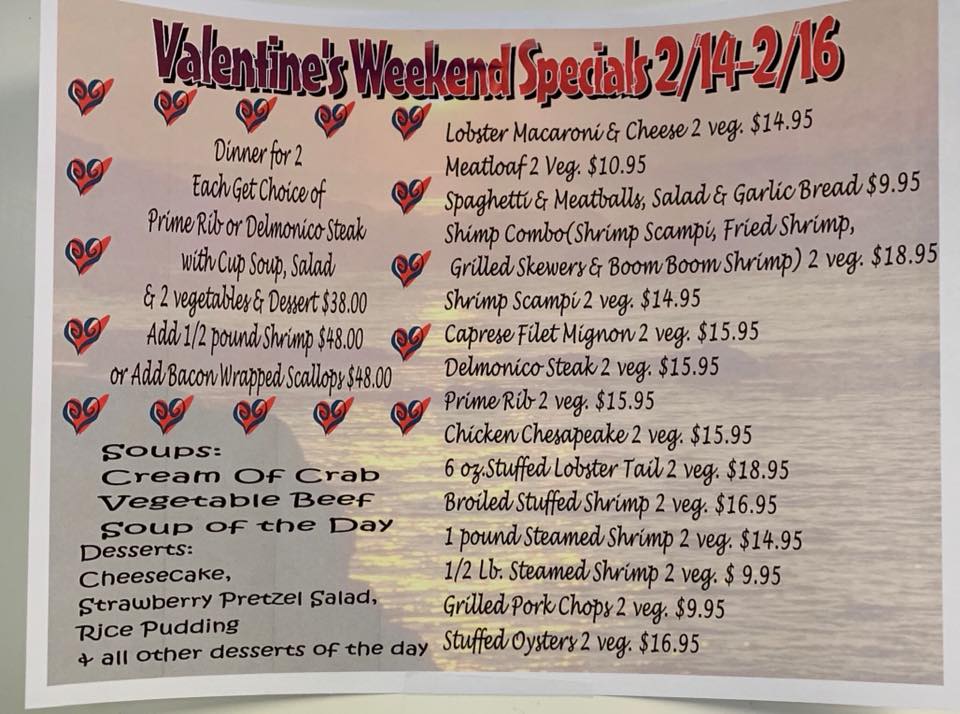 Valentine's Weekend Specials 2/14-2/16
Dinner for 2
Each Get Choice of
Prime Rib or Delmonico Steak
with Cup Soup, Salad
& 2 vegetables & Dessert $38.00
Add 1/2 pound Shrimp $48.00
or Add Bacon Wrapped Scallops $48.00
Soups:
Cream Of Crab
Vegetable Beef
Soup of the Day
Desserts:
Cheesecake,
Strawberry Pretzel Salad,
Rice Pudding
& all other desserts of the day
Lobster Macaroni & Cheese 2 veg. $14.95
Meatloaf 2 Veg. $10.95
Spaghetti & Meatballs, Salad & Garlic Bread $9.95
Shimp Combo(Shrimp Scampi, Fried Shrimp,
Grilled Skewers & Boom Boom Shrimp) 2 veg. $18.95
Shrimp Scampi 2 veg. $14.95
Caprese Filet Mignon 2 veg. $15.95
Delmonico Steak 2 veg. $15.95
Prime Rib 2 veg. $15.95
Chicken Chesapeake 2 veg. $15.95
6 oz.Stuffed Lobster Tail 2 veg. $18.95
Broiled Stuffed Shrimp 2 veg. $16.95
1 pound Steamed Shrimp 2 veg. $14.95
1/2 Lb. Steamed Shrimp 2 veg. $ 9.95
Grilled Pork Chops 2 veg. $9.95
Stuffed Oysters 2 veg. $16.95